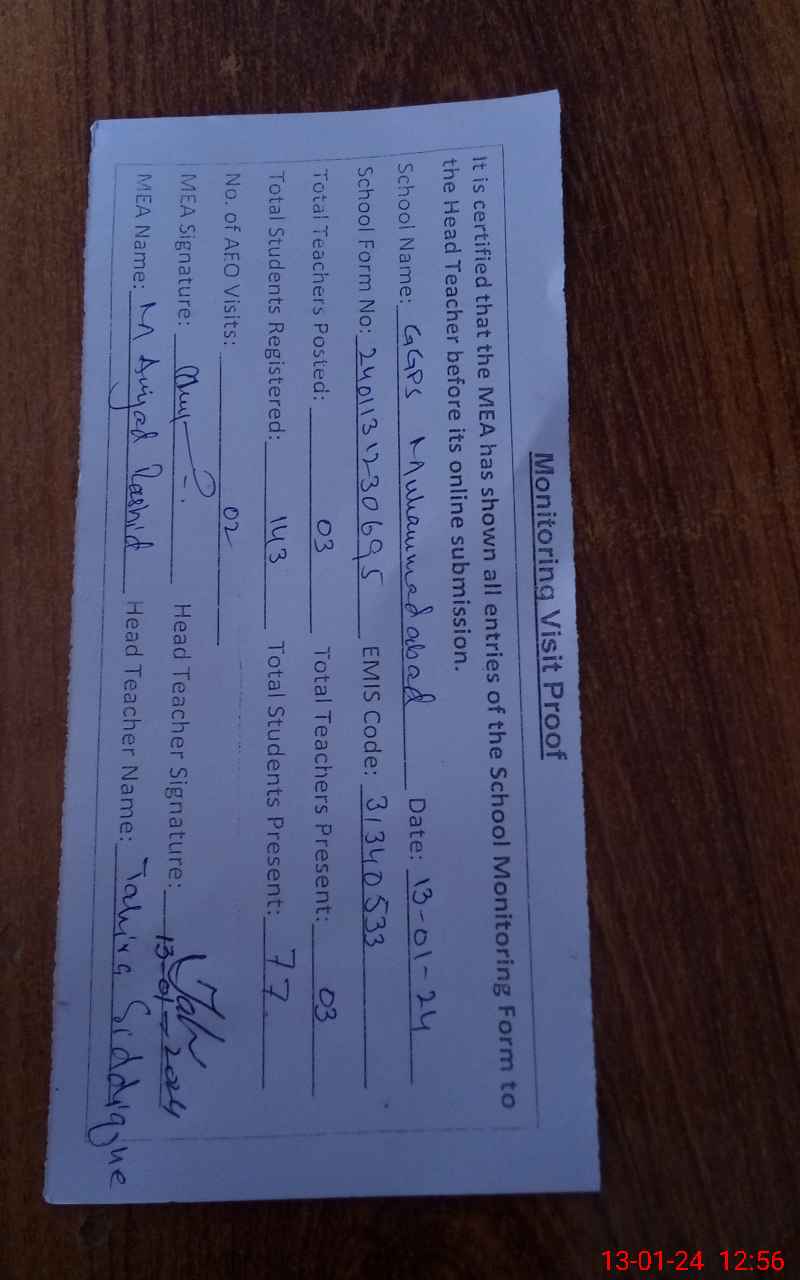 Monitoring Visit Proof
It is certified that the MEA has shown all entries of the School Monitoring Form to
the Head Teacher before its online submission.
School Name: GGPS Muhammadabad Date: 13-01-24
School Form No: EMIS Code: 31340533
Total Teachers Posted: 03 Total Teachers Present: 03
Total Students Registered: 143 Total Students Present: 77
No. of AEO Visits: 02
MEA Signature: Head Teacher Signature: 13-01-2024
MEA Name: M Rashid Head Teacher Name: Tahira Siddique
13-01-24 12:56